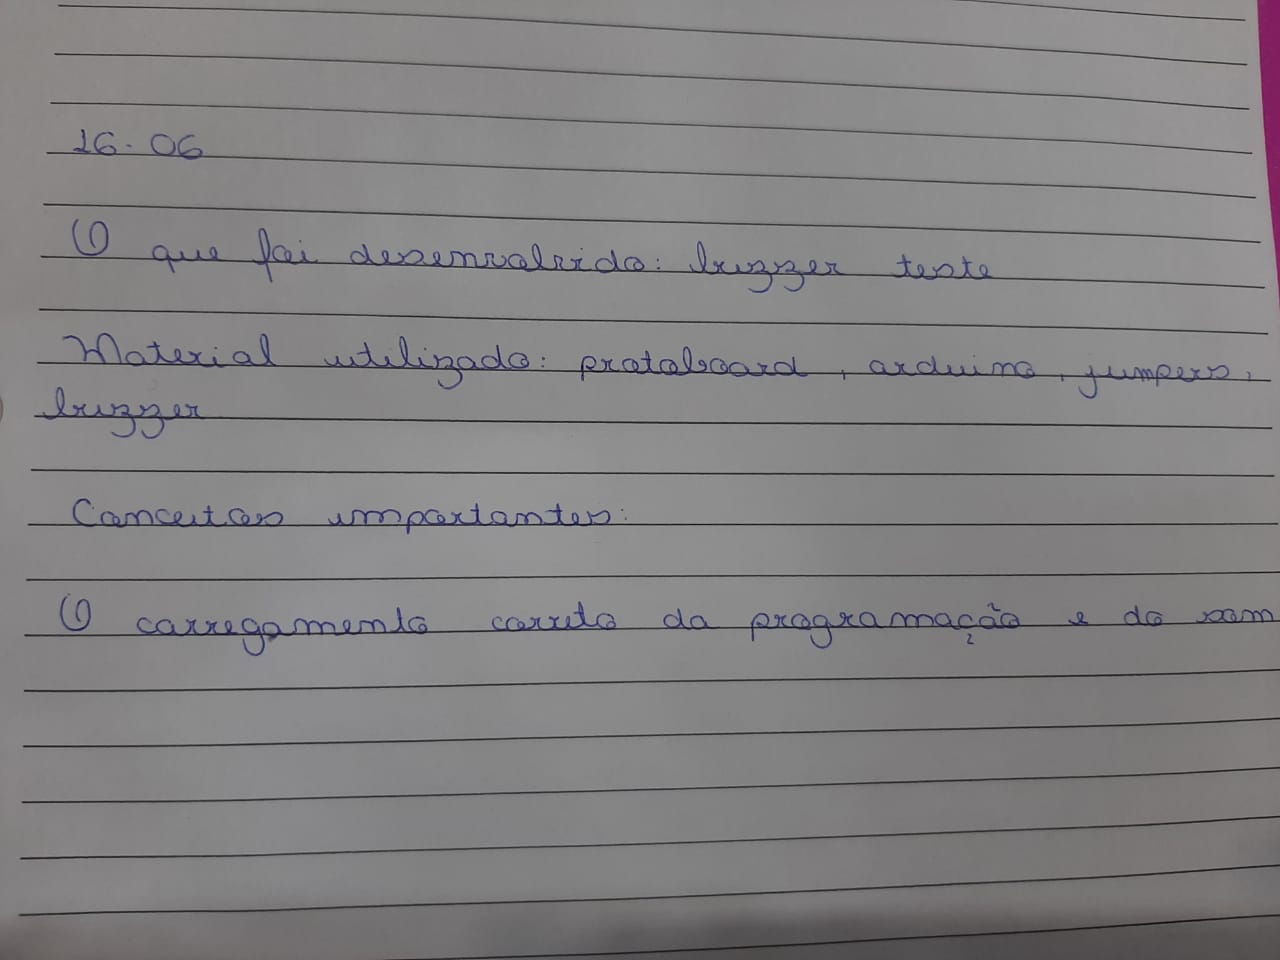 16.06
O que foi desenvolvido: buzzer teste
Material utilizado: protoboard, arduino, jumpers,
buzzer
Conceitos importantes:
O carregamento correto da programação e do som